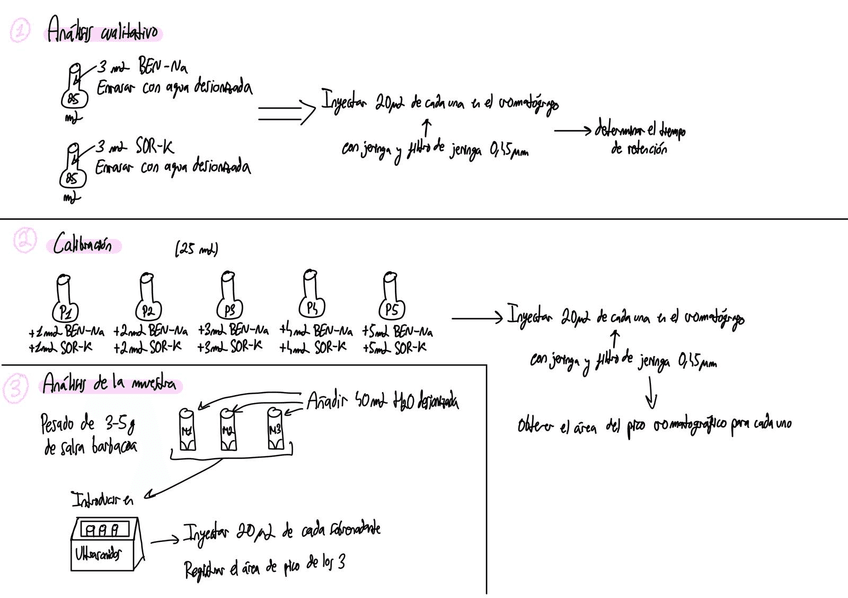 1 Análisis cualitativo
3 mL BEN-Na
Enrasar con agua desionizada
25
mL
3 mL SOR-K
Enrasar con agua desionizada
25
mL
Inyectar 20µL de cada una en el cromatógrafo
con jeringa y filtro de jeringa 0,45µm
determinar el tiempo
de retención
2 Calibración (25 mL)
P1 P2 P3 P4 P5
+1mL BEN-Na +2mL BEN-Na +3mL BEN-Na +4mL BEN-Na +5mL BEN-Na
+1mL SOR-K +2mL SOR-K +3mL SOR-K +4mL SOR-K +5mL SOR-K
Inyectar 20µL de cada una en el cromatógrafo
con jeringa y filtro de jeringa 0,45µm
Obtener el área del pico cromatográfico para cada uno
3 Análisis de la muestra
Pesado de 3-5g
de salsa barbacoa
M1 M2 M3
Añadir 40mL H2O desionizada
Introducir en
Ultrasonidos
Inyectar 20µL de cada sobrenadante
Registrar el área de pico de los 3